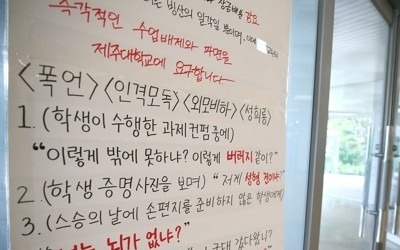 빙산의 일각일 뿐이며,
즉각적인 수업배제와 파면을
제주대학교에 요구합니다
<폭언><인격모독><외모비하><성희롱>
1. (학생이 수행한 과제 컨펌중에)
"이렇게 밖에 못하냐? 이렇게 버러지같이?"
2. (학생 증명사진을 보며) "저게 성형 전이냐?"
3. (스승의 날에 손편지를 준비하지 않은 학생에게)
뇌가 없냐?"